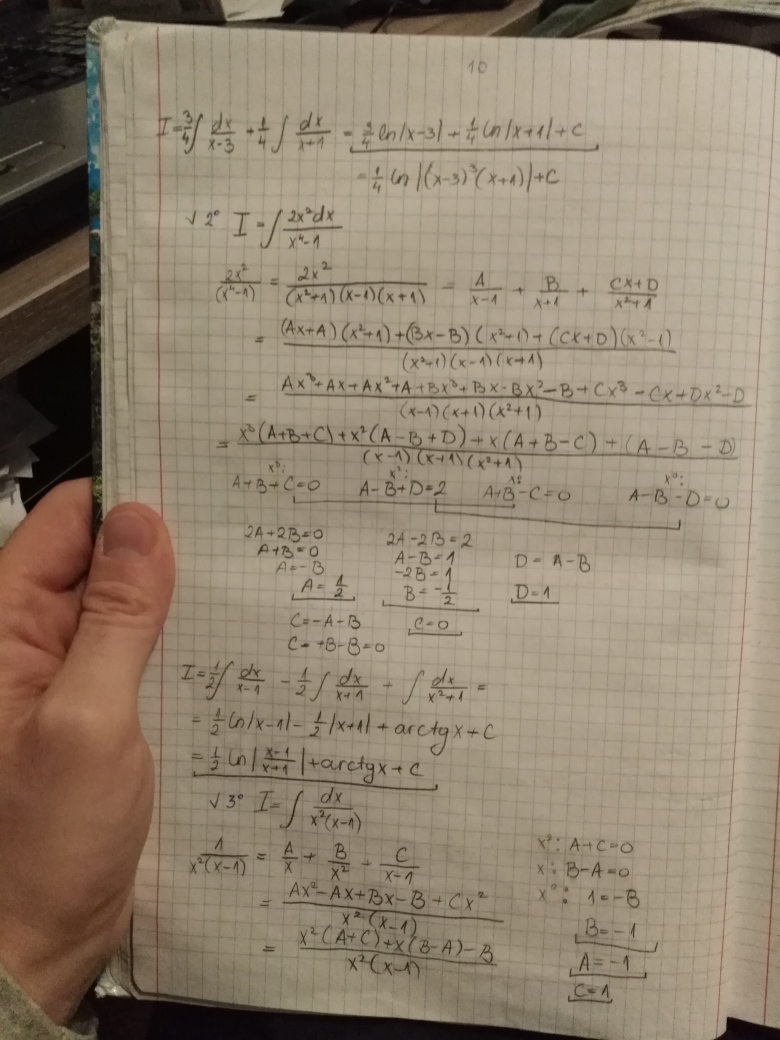 10
I = 3/4 ∫ dx/(x-3) + 1/4 ∫ dx/(x+1) = 3/4 ln|x-3| + 1/4 ln|x+1| + C
= 1/4 ln|(x-3)³(x+1)| + C
√ 2° I = ∫ 2x²dx/(x⁴-1)
2x²/(x⁴-1) = 2x²/((x²+1)(x-1)(x+1)) = A/(x-1) + B/(x+1) + (Cx+D)/(x²+1)
= ((Ax+A)(x²+1)+(Bx-B)(x²+1)+(Cx+D)(x²-1))/((x²+1)(x-1)(x+1))
= (Ax³+Ax+Ax²+A+Bx³+Bx-Bx²-B+Cx³-Cx+Dx²-D)/((x-1)(x+1)(x²+1))
= (x³(A+B+C)+x²(A-B+D)+x(A+B-C)+(A-B-D))/((x-1)(x+1)(x²+1))
x³: x²: x: x⁰:
A+B+C=0 A-B+D=2 A+B-C=0 A-B-D=0
2A+2B=0 2A-2B=2
A+B=0 A-B=1 D=A-B
A=-B -2B=1
A=1/2 B=-1/2 D=1
C=-A-B C=0
C=+B-B=0
I = 1/2 ∫ dx/(x-1) - 1/2 ∫ dx/(x+1) + ∫ dx/(x²+1) =
= 1/2 ln|x-1| - 1/2 |x+1| + arctgx + C
= 1/2 ln|(x-1)/(x+1)| + arctgx + C
√ 3° I = ∫ dx/(x²(x-1))
1/(x²(x-1)) = A/x + B/x² + C/(x-1)
= (Ax²-Ax+Bx-B+Cx²)/(x²(x-1))
= (x²(A+C)+x(B-A)-B)/(x²(x-1))
x²: A+C=0
x: B-A=0
x⁰: 1=-B
B=-1
A=-1
C=1